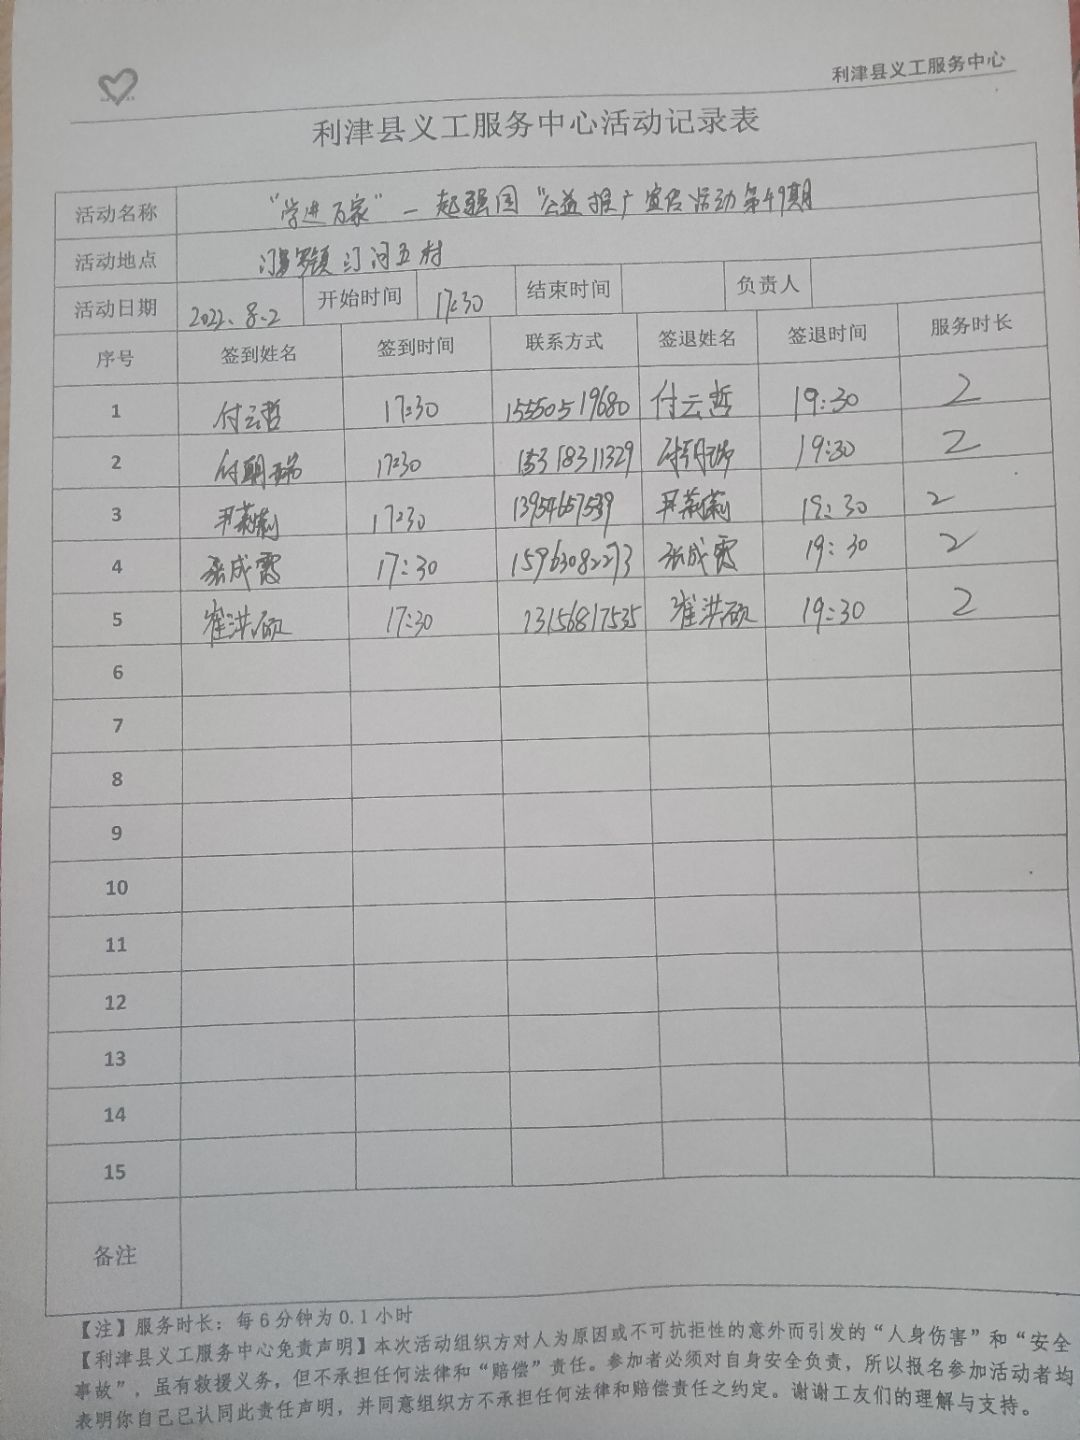 利津县义工服务中心
利津县义工服务中心活动记录表
活动名称 “学进万家”一起强国“公益推广宣传活动第49期
活动地点 汀罗镇汀河五村
活动日期 2022.8.2 开始时间 17:30 结束时间 负责人
序号 签到姓名 签到时间 联系方式 签退姓名 签退时间 服务时长
1 付云哲 17:30 15550519680 付云哲 19:30 2
2 付朝瑞 17:30 15318311329 付朝瑞 19:30 2
3 尹莉莉 17:30 13954657539 尹莉莉 19:30 2
4 张成霞 17:30 15963082273 张成霞 19:30 2
5 崔洪硕 17:30 13156817535 崔洪硕 19:30 2
6
7
8
9
10
11
12
13
14
15
备注
【注】服务时长：每6分钟为0.1小时
【利津县义工服务中心免责声明】本次活动组织方对人为原因或不可抗拒性的意外而引发的“人身伤害”和“安全
事故”，虽有救援义务，但不承担任何法律和“赔偿”责任。参加者必须对自身安全负责，所以报名参加活动者均
表明你自己已认同此责任声明，并同意组织方不承担任何法律和赔偿责任之约定。谢谢工友们的理解与支持。